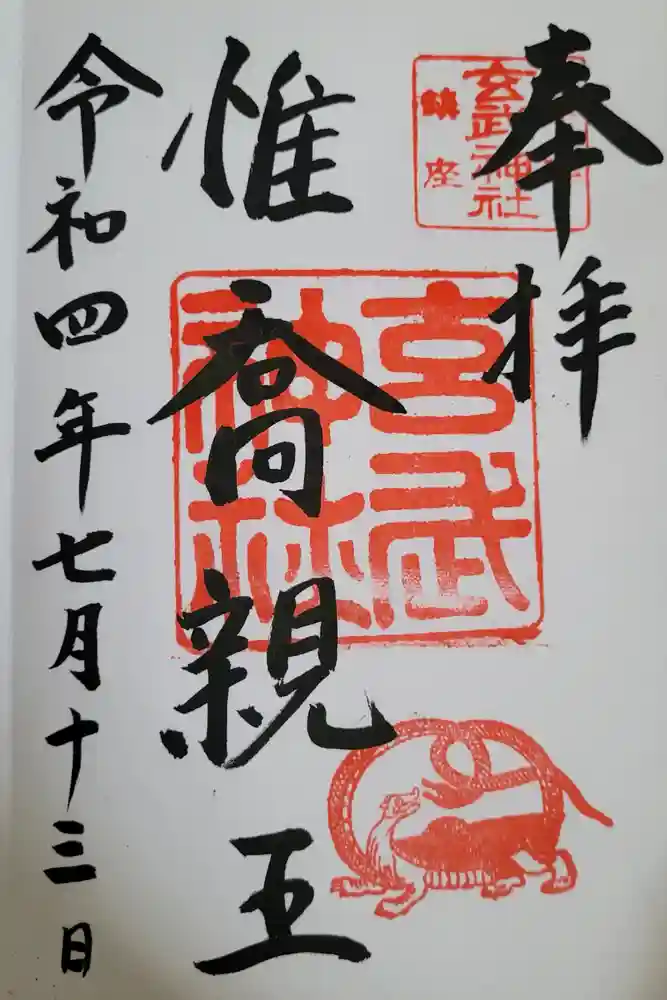 奉拝
玄武神社
鎮座
惟喬親王
玄武神社
令和四年七月十三日